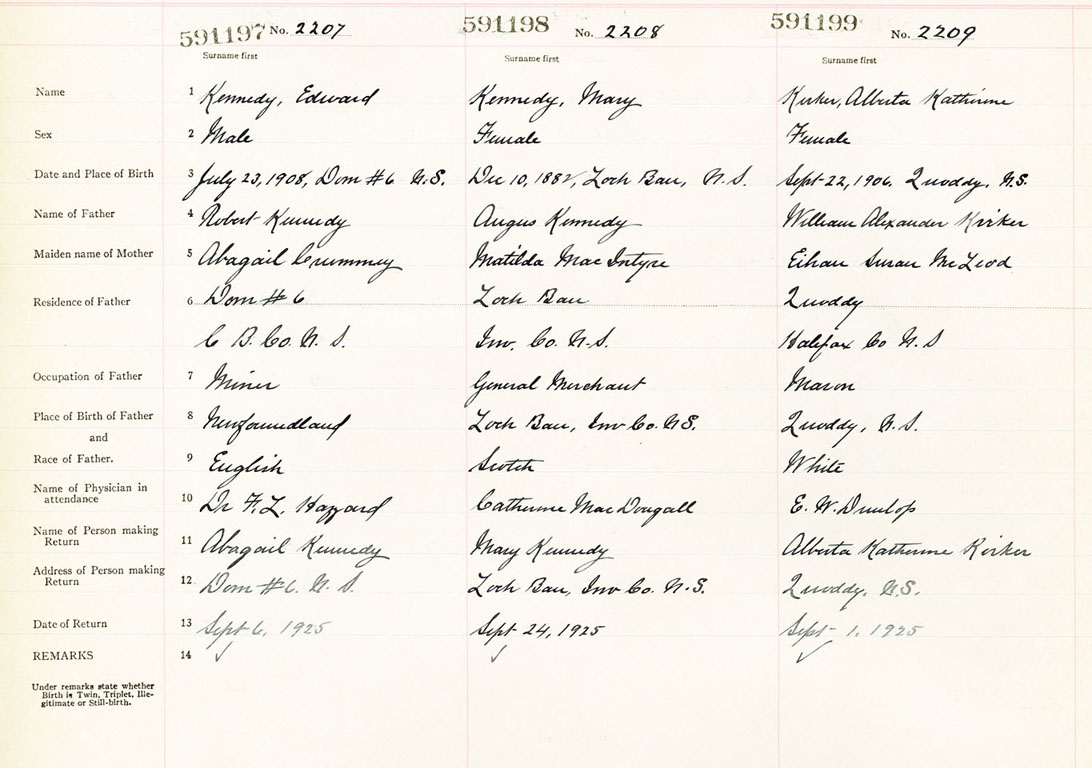 591197 No. 2207 591198 No. 2208 591199 No. 2209
Surname first Surname first Surname first
Name 1 Kennedy, Edward Kennedy, Mary Kirker, Alberta Katherine
Sex 2 Male Female Female
Date and Place of Birth 3 July 23, 1908, Dom #6 N.S. Dec 10, 1882, Loch Ban, N.S. Sept 22, 1906, Quoddy, N.S.
Name of Father 4 Robert Kennedy Angus Kennedy William Alexander Kirker
Maiden name of Mother 5 Abagail Crummey Matilda MacIntyre Susan McLeod
Residence of Father 6 Dom #6 Loch Ban Quoddy
C B. Co. N. S. Inv. Co. N.S. Halifax Co N.S
Occupation of Father 7 Miner General Merchant Mason
Place of Birth of Father 8 Newfoundland Loch Ban, Inv Co. N.S. Quoddy, N.S.
and
Race of Father. 9 English Scotch White
Name of Physician in
attendance 10 Dr F. L. Hazzard Catherine MacDougall E. W. Dunlop
Name of Person making
Return 11 Abagail Kennedy Mary Kennedy Alberta Katherine Kirker
Address of Person making
Return 12 Dom #6. N. S. Loch Ban, Inv Co. N.S. Quoddy, N.S.
Date of Return 13 Sept 6, 1925 Sept 24, 1925 Sept 1, 1925
REMARKS 14
Under remarks state whether
Birth is Twin, Triplet, Ille-
gitimate or Still-birth.